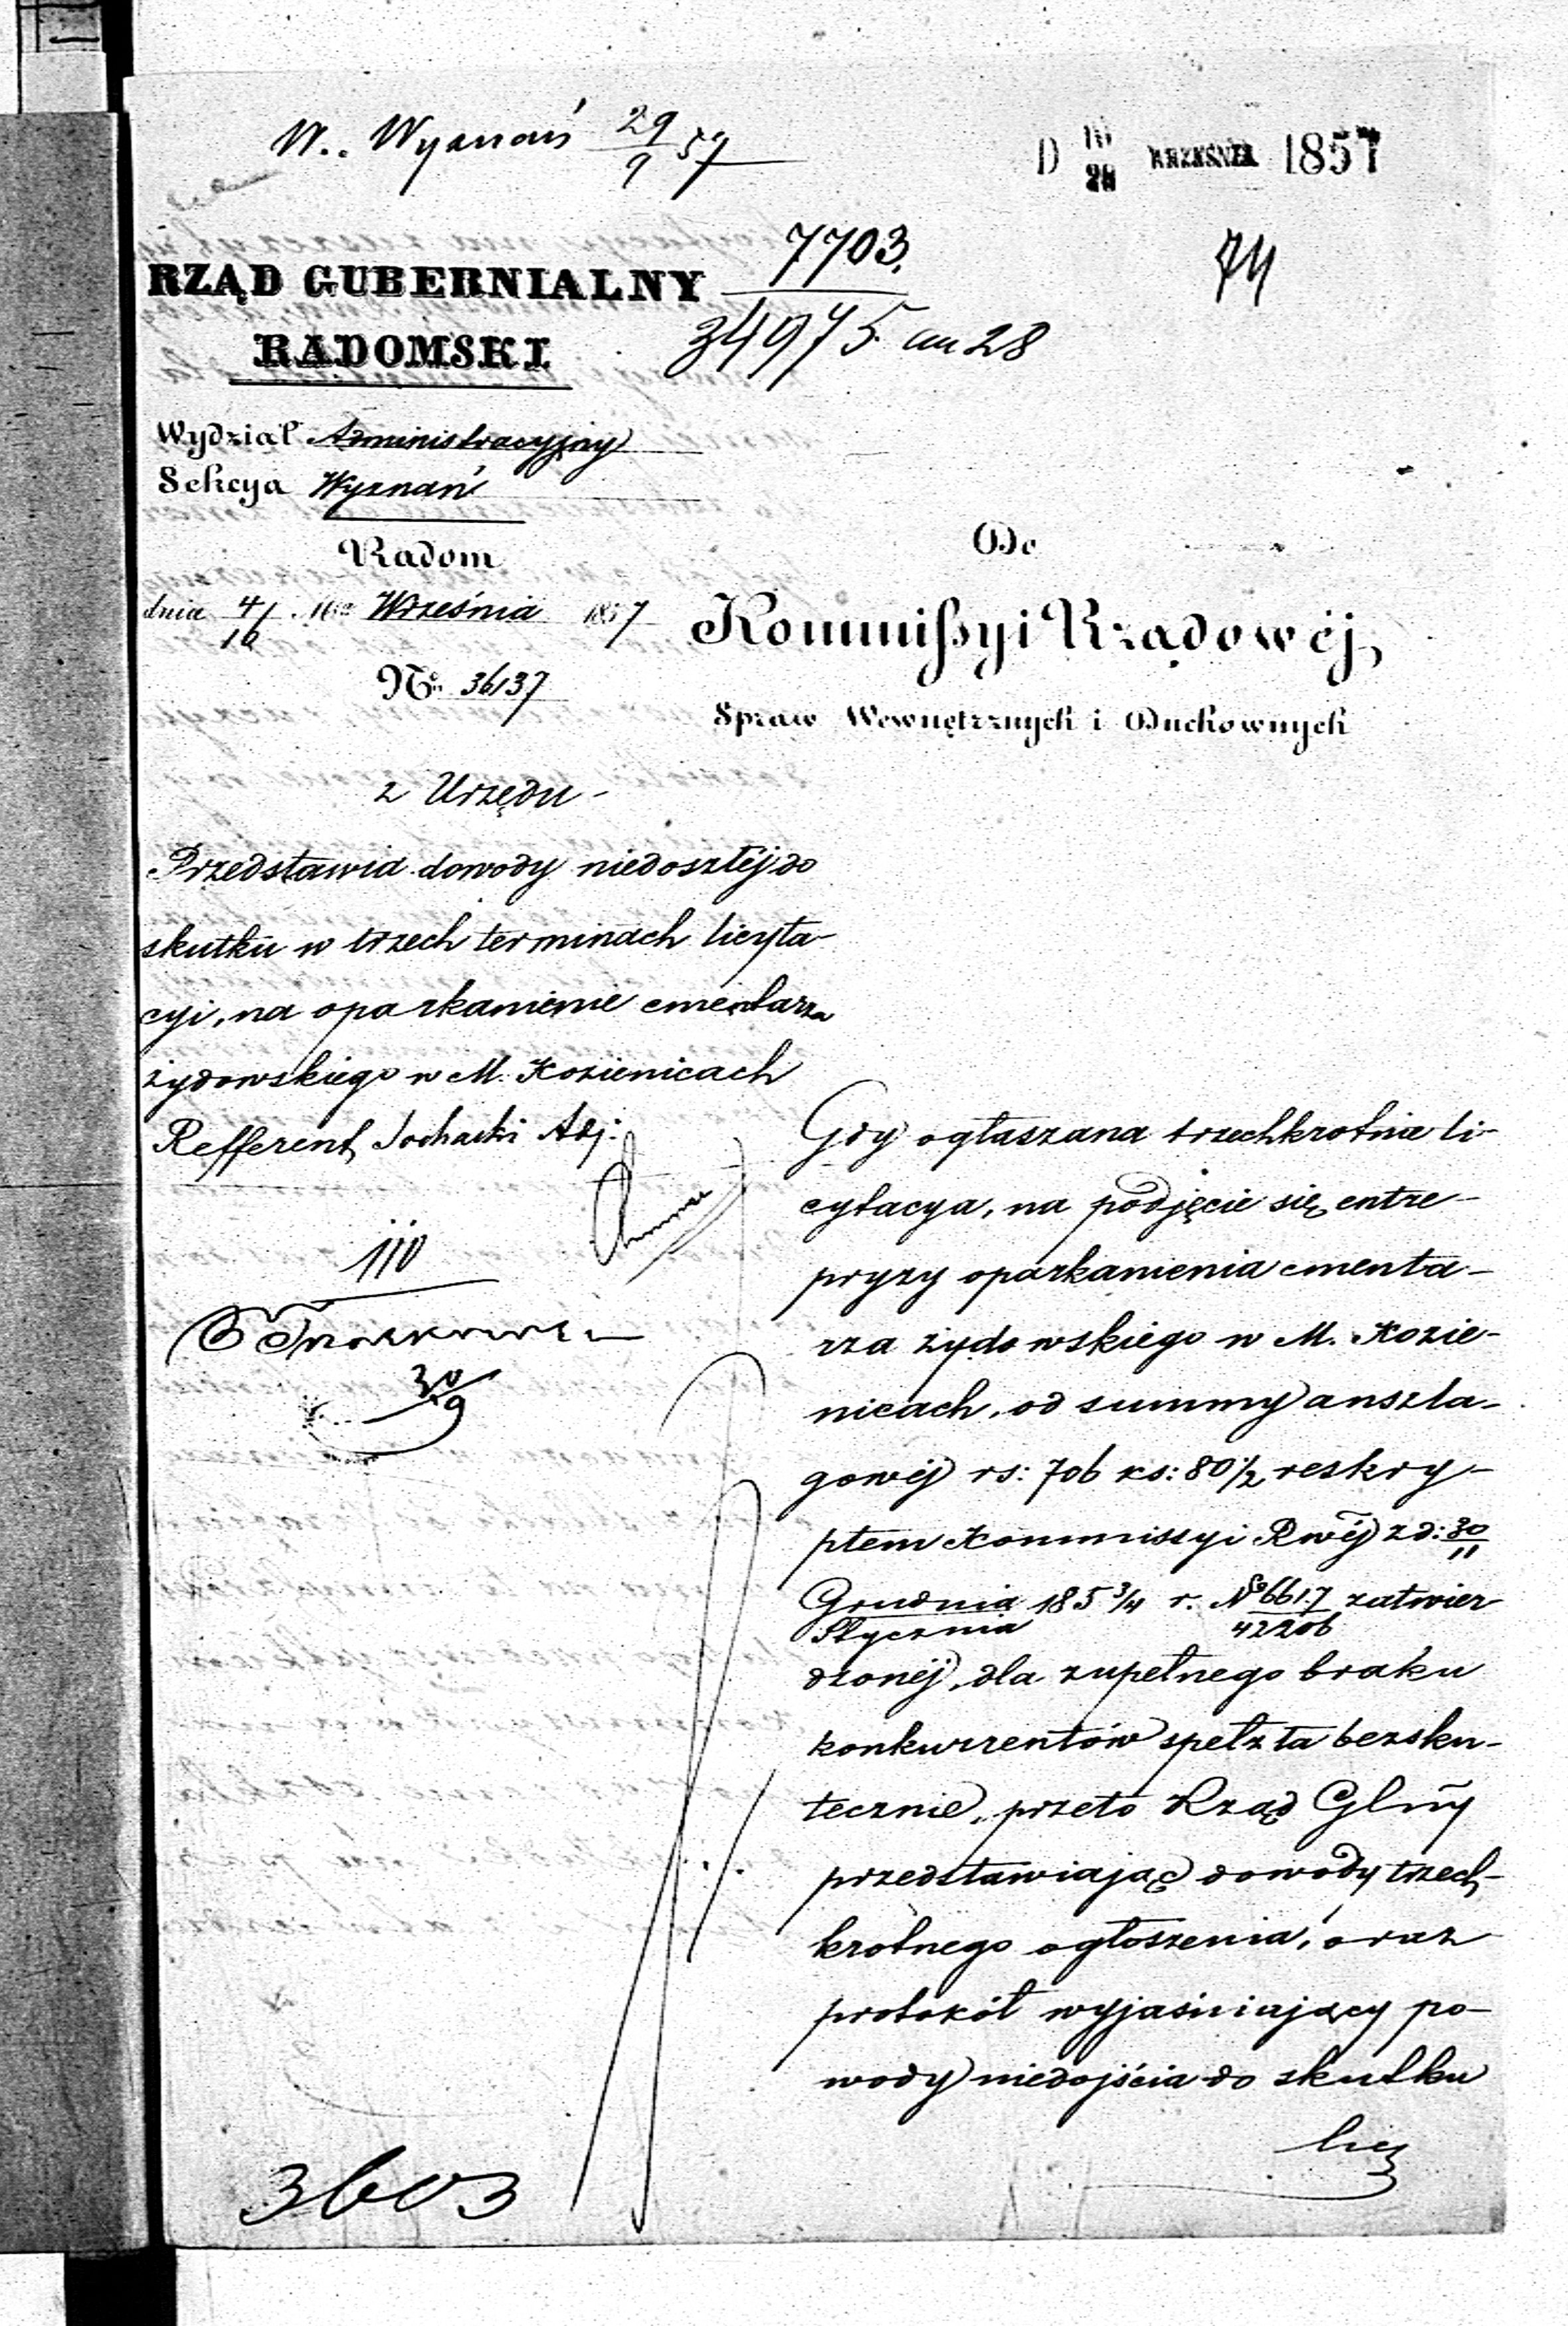 W. Wyznań 29/9 57
D 16/28 WRZEŚNIA 1857
7703.
34975 an 28
74
RZĄD GUBERNIALNY
RADOMSKI
Wydział Administracyjny
Sekcya Wyznań
Radom
dnia 4/16 Września 1857
No. 36137
Do
Kommissyi Rządowéj
Spraw Wewnętrznych i Duchownych
z Urzędu -
Przedstawia dowody niedoszłéj do
skutku w trzech terminach licyta-
cyi, na oparkanienie cmentarza
żydowskiego w M. Kozienicach
Refferent Sochacki Adj:
30/9
3603
Gdy ogłaszana trzechkrotnie li-
cytacya, na podjęcie się entre-
pryzy oparkanienia cmenta-
rza żydowskiego w M. Kozie-
nicach, od summy anszla-
gowéj rs: 706 ks: 80 1/2 reskry-
ptem Kommissyi Rwéj z d: 30/11
Grudnia/Stycznia 185 3/4 r. No 6617/42206 zatwier
dzonéj, dla zupełnego braku
konkurrentów spełzła bezsku-
tecznie, przeto Rząd Glny
przedstawiając dowody trzech-
krotnego ogłoszenia, oraz
protokół wyjaśniający po-
wody niedojścia do skutku
licy